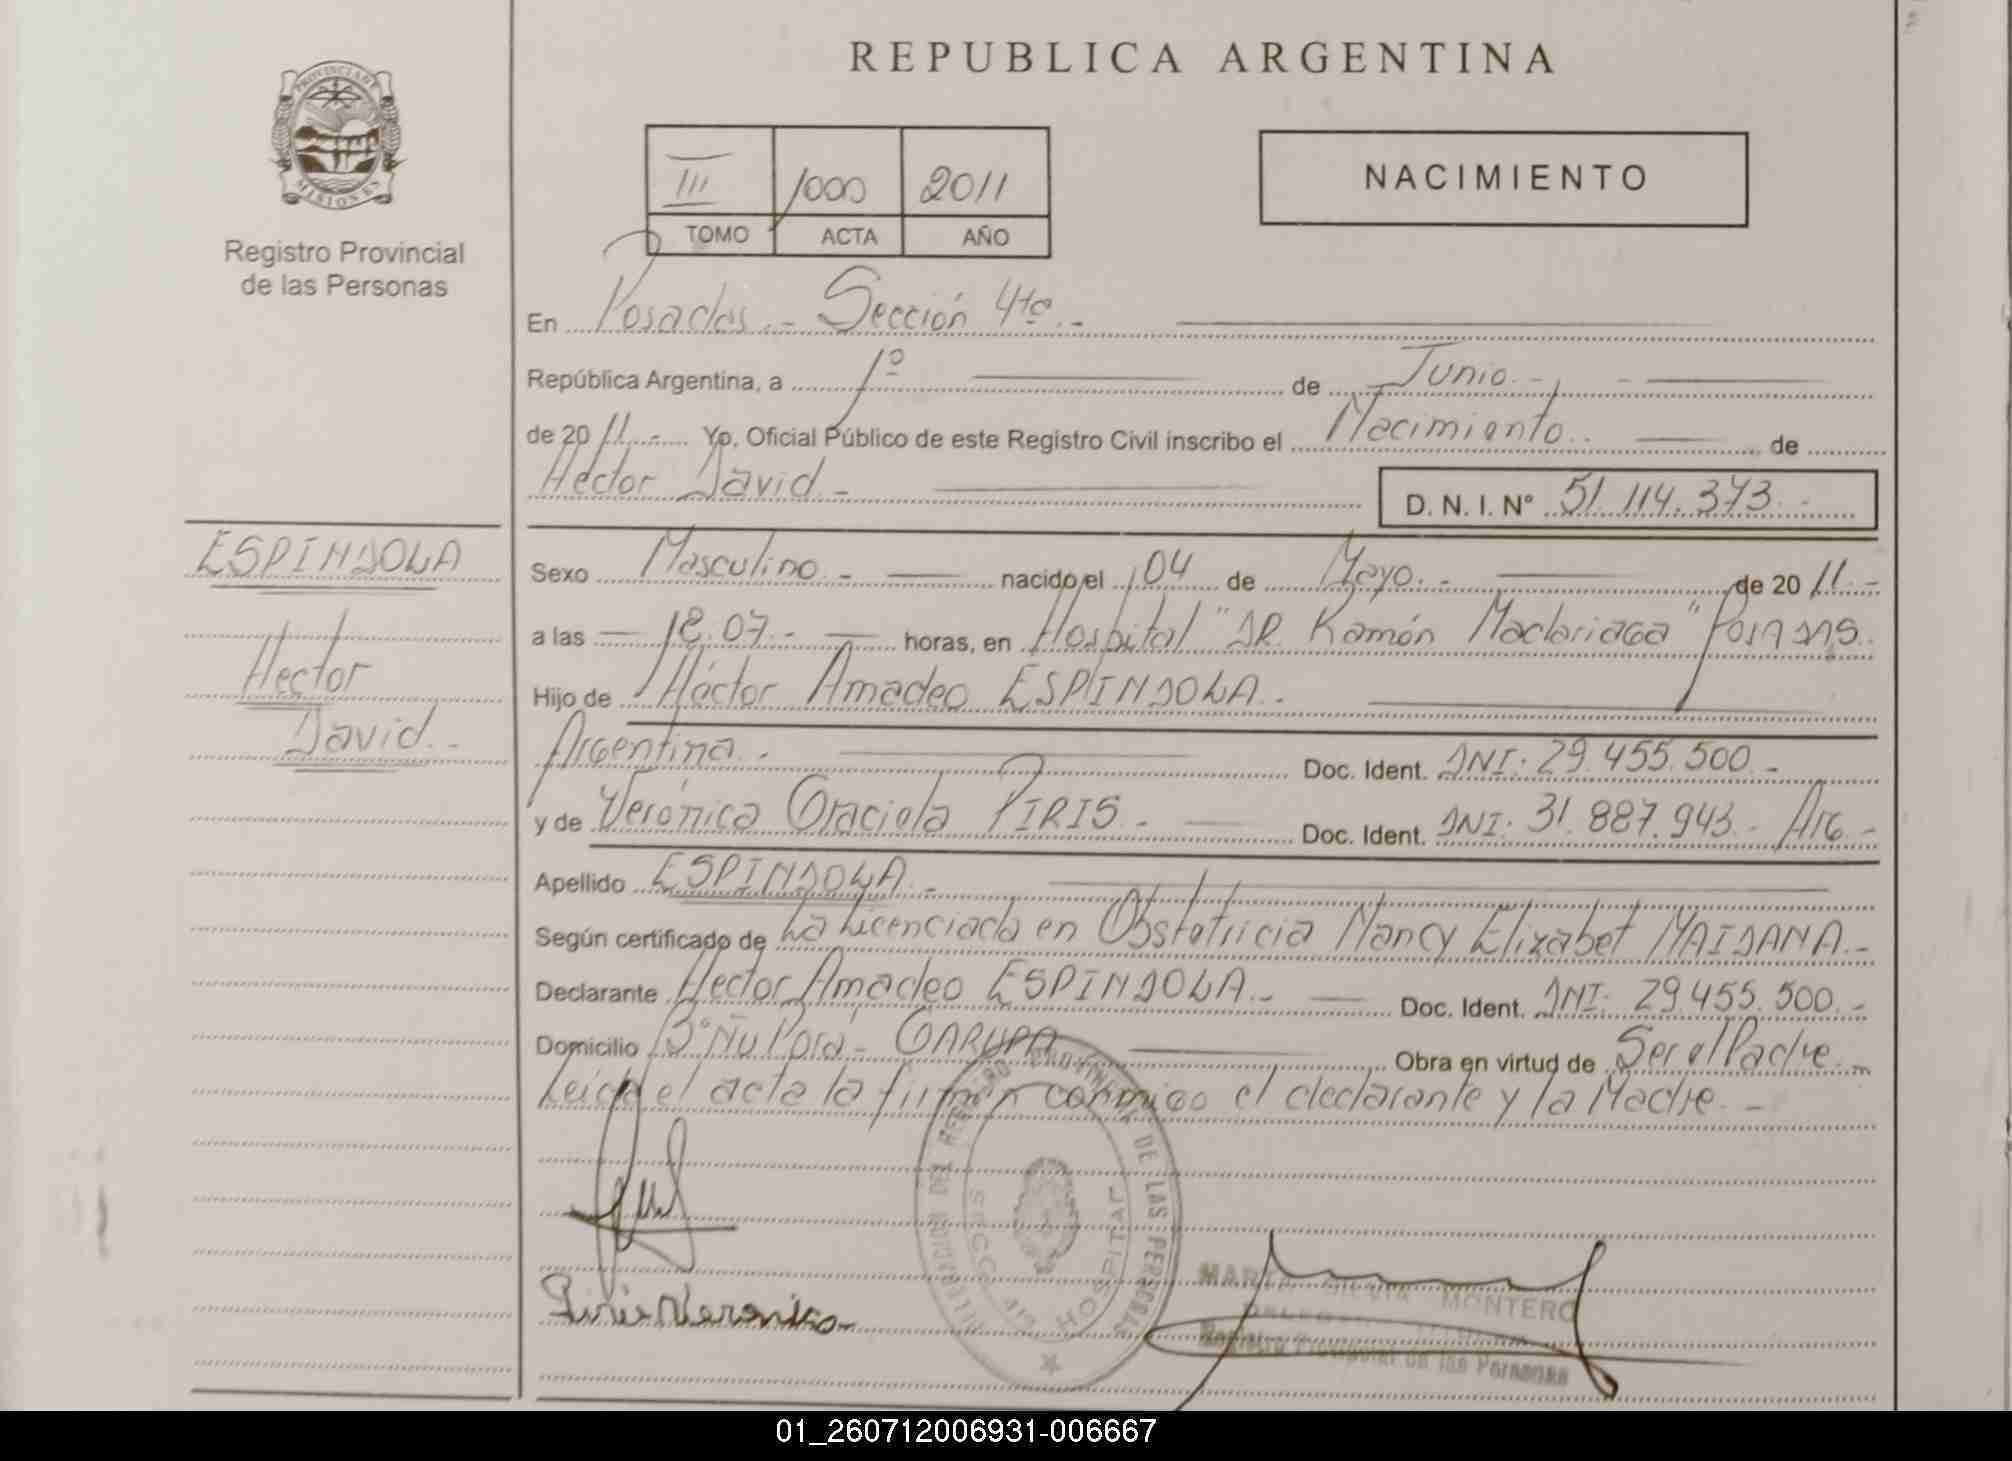 REPUBLICA ARGENTINA
PROVINCIA DE
MISIONES
Registro Provincial
de las Personas
III 1000 2011
TOMO ACTA AÑO
NACIMIENTO
En Posadas.- Sección 4ta.-
República Argentina, a 1º de Junio.-
de 2011.- Yo, Oficial Público de este Registro Civil inscribo el Nacimiento.. de
Hector David.-
D. N. I. Nº 51.114.373.-
ESPINDOLA
Hector
David.-
Sexo Masculino.- nacido el 04 de Mayo.- de 2011.-
a las 18.07.- horas, en Hospital "DR. Ramón Madariaga" Posadas.
Hijo de Héctor Amadeo ESPINDOLA.-
Argentina.- Doc. Ident. DNI: 29.455.500.-
y de Verónica Graciela PIRIS.- Doc. Ident. DNI: 31.887.943.- Arg.-
Apellido ESPINDOLA.-
Según certificado de La Licenciada en Obstetricia Nancy Elizabet MAIDANA.-
Declarante Hector Amadeo ESPINDOLA.- Doc. Ident. DNI: 29.455.500.-
Domicilio Bº Ñu Porá - GARUPA Obra en virtud de Ser el Padre.-
Leida el acta la firman conmigo el declarante y la Madre.-
REGISTRO PROVINCIAL DE LAS PERSONAS
SECC. 4ta HOSPITAL
Piris Veronica
MONTERO
Registro Provincial de las Personas
01_260712006931-006667